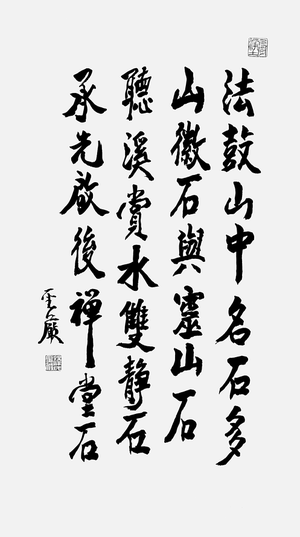 法鼓山中名石多
山徽石與靈山石
聽溪賞水雙靜石
承先啟後禪堂石
聖嚴